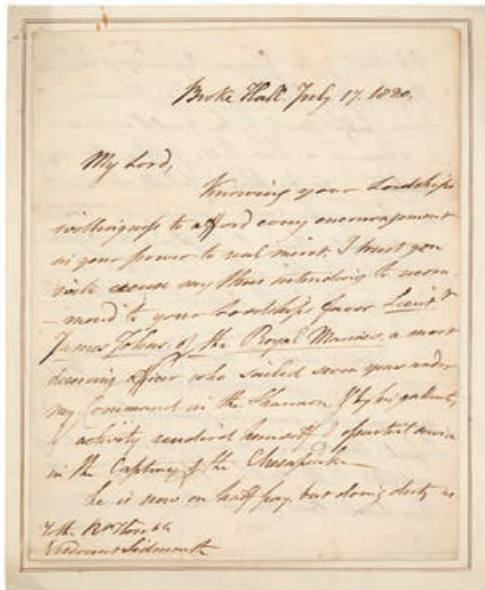 Broke Hall. July 17. 1820.
My Lord,
Knowing your Lordships
willingness to afford every encouragement
in your power to real merit. I trust you
will excuse my thus intruding to recom-
-mend to your Lordships favor Lieut.
James Johns of the Royal Marines, a most
deserving officer who sailed seven years under
my Command in the Shannon & by his gallant
activity rendered himself of essential service
in the Capture of the Chesapeake
he is now on half pay, but doing duty as
To the Rt. Honble
Viscount Sidmouth